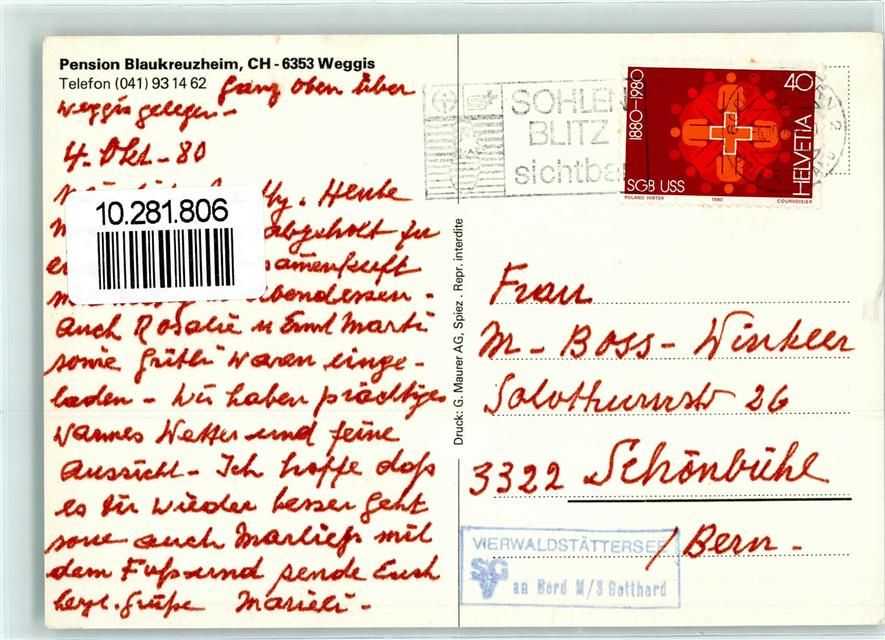 Pension Blaukreuzheim, CH-6353 Weggis
Telefon (041) 93 14 62
ganz oben über
Weggis gelegen -
4. Okt - 80
Heute
10.281.806
abgeholt zu
samenkuft
bendessen -
auch Rosalie u Ernst Marti
sowie Gritli waren einge-
laden - Wir haben prächtiges
warmes Wetter und feine
Aussicht - Ich hoffe dass
es Dir wieder besser geht
sowie auch Marlies mit
dem Fuss und sende Euch
herzl. Grüsse Marieli -
Druck: G. Maurer AG, Spiez. Repr. interdite
SOHLEN
BLITZ
sichtba
1880-1980
40
HELVETIA
SGB USS
ROLAND HIRTER 1980 COURVOISIER
Frau
M- Boss- Winkler
Solothurnstr 26
3322 Schönbühl
/Bern -
VIERWALDSTÄTTERSEE
SG
an Bord M/S Gotthard